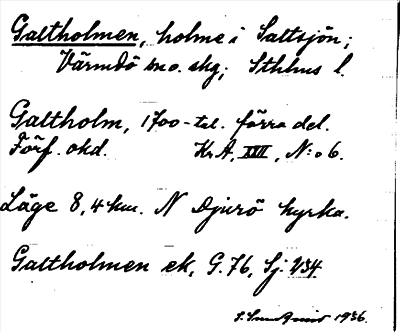 Galtholmen, holme i Saltsjön;
Värmdö sno. skg; Sthlms l.
Galtholm, 1700-tal. förra del.
Förf. okd. Kr.A, XVII, N:o 6.
Läge 8,4 km. N Djurö kyrka.
Galtholmen ek, G.76, Sj. V34.
1936.